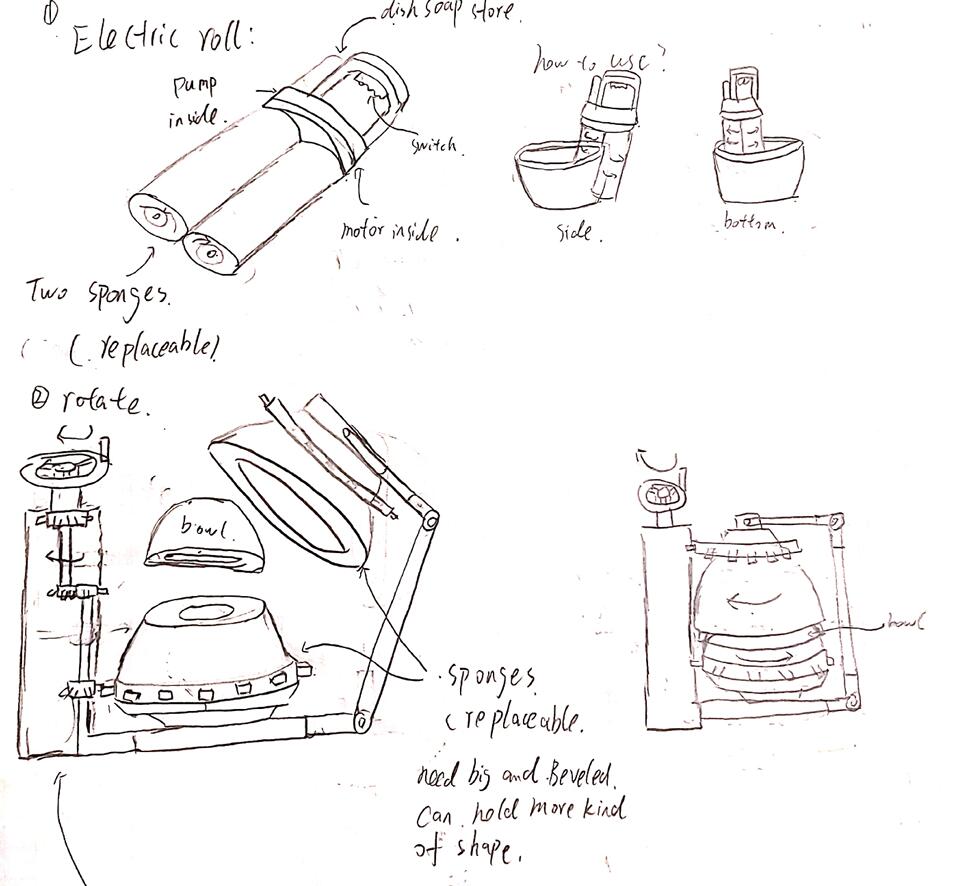 ① Electric roll:
dish soap store.
pump
inside.
switch.
motor inside.
Two sponges.
(replaceable)
how to use?
side.
bottom.
② rotate.
bowl.
sponges
(replaceable.
need big and Beveled.
Can hold more kind
of shape.
bowl